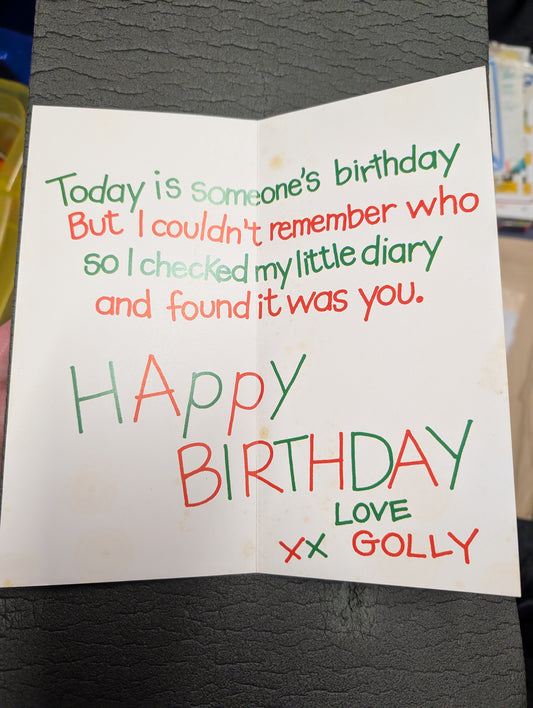 Today is someone's birthday
But I couldn't remember who
so I checked my little diary
and found it was you.
HAppy
BIRTHDAY
LOVE
xx GOLLY